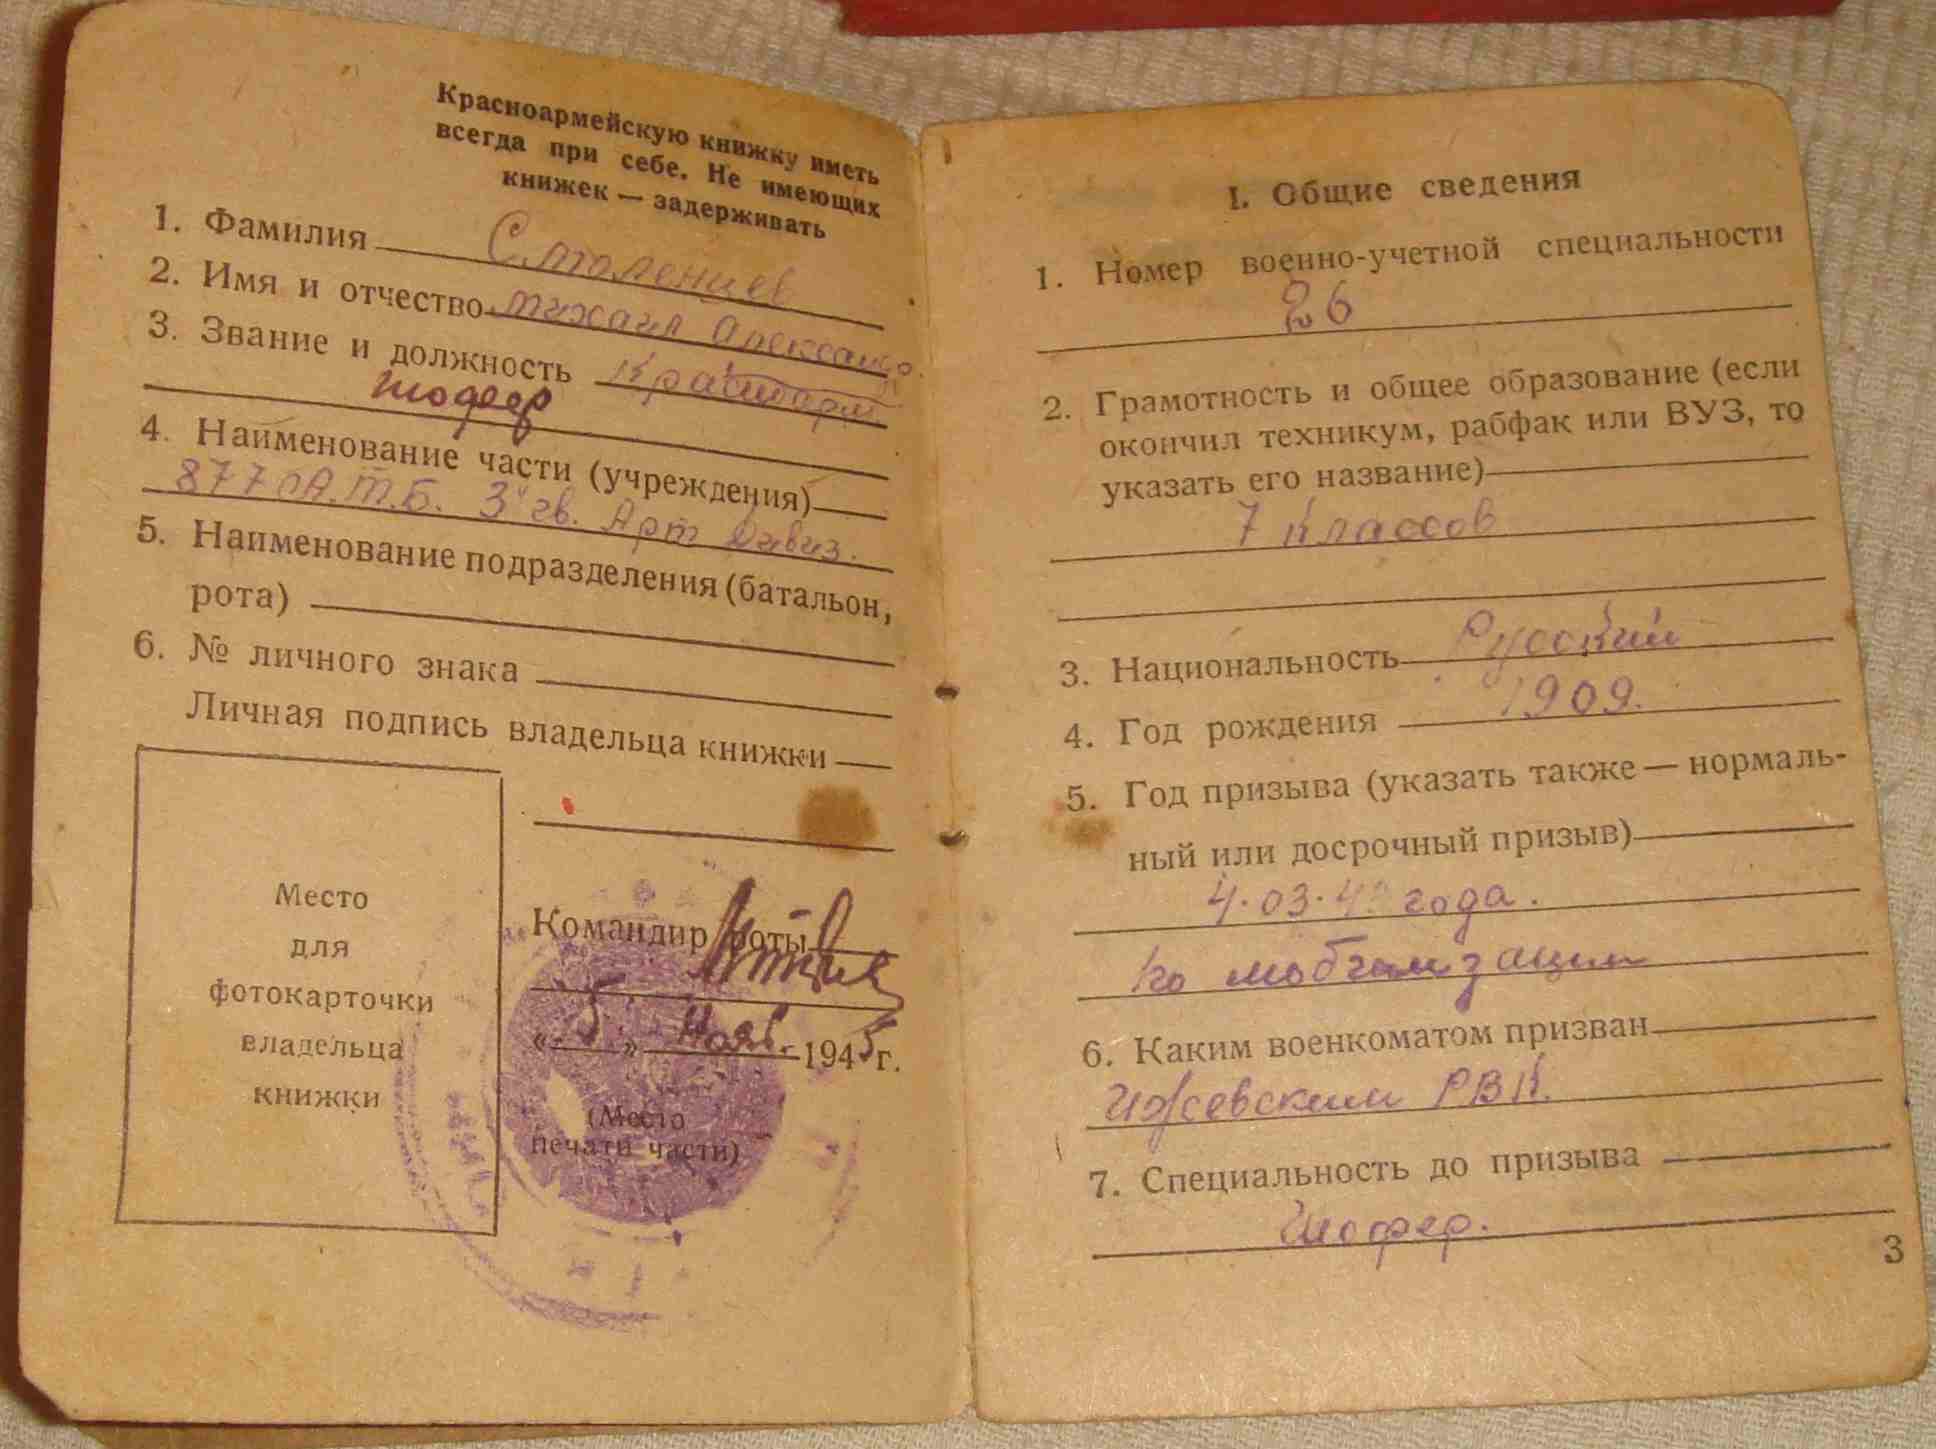 Красноармейскую книжку иметь
всегда при себе. Не имеющих
книжек — задерживать
1. Фамилия
2. Имя и отчество Михаил Александ
3. Звание и должность Красноарм
шофер
4. Наименование части (учреждения)
877 А.Т.Б. 3й гв. Арт Дивиз.
5. Наименование подразделения (батальон,
рота)
6. № личного знака
Личная подпись владельца книжки
Место
для
фотокарточки
владельца
книжки
Командир роты
«5» Нояб. 1945 г.
(Место
печати части)
I. Общие сведения
1. Номер военно-учетной специальности
26
2. Грамотность и общее образование (если
окончил техникум, рабфак или ВУЗ, то
указать его название)
7 классов
3. Национальность Русский
4. Год рождения 1909.
5. Год призыва (указать также — нормаль-
ный или досрочный призыв)
4.03. года.
по мобилизации
6. Каким военкоматом призван
Ижевским РВК.
7. Специальность до призыва
Шофер.
3